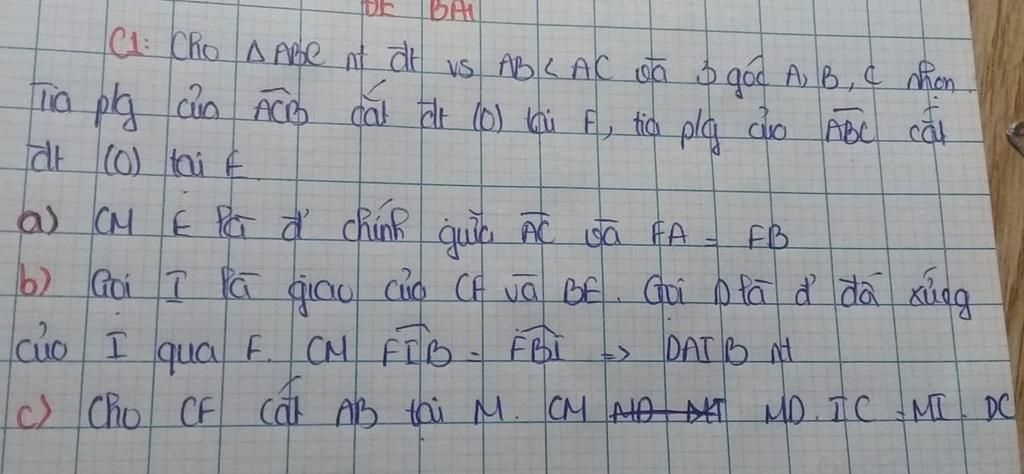 ĐỀ BÀI
C1: Cho △ABC nt đt vs AB < AC và 3 góc A, B, C nhọn.
Tia plg của ACB cắt đt (O) tại F, tia plg của ABC cắt
đt (O) tại E
a) CM E là đ' chính giữa AC và FA = FB
b) Gọi I là giao của CF và BE. Gọi D là đ' đối xứng
của I qua F. CM FIB = FBI => DAIB nt
c) Cho CF cắt AB tại M. CM MD. IC = MI. DC